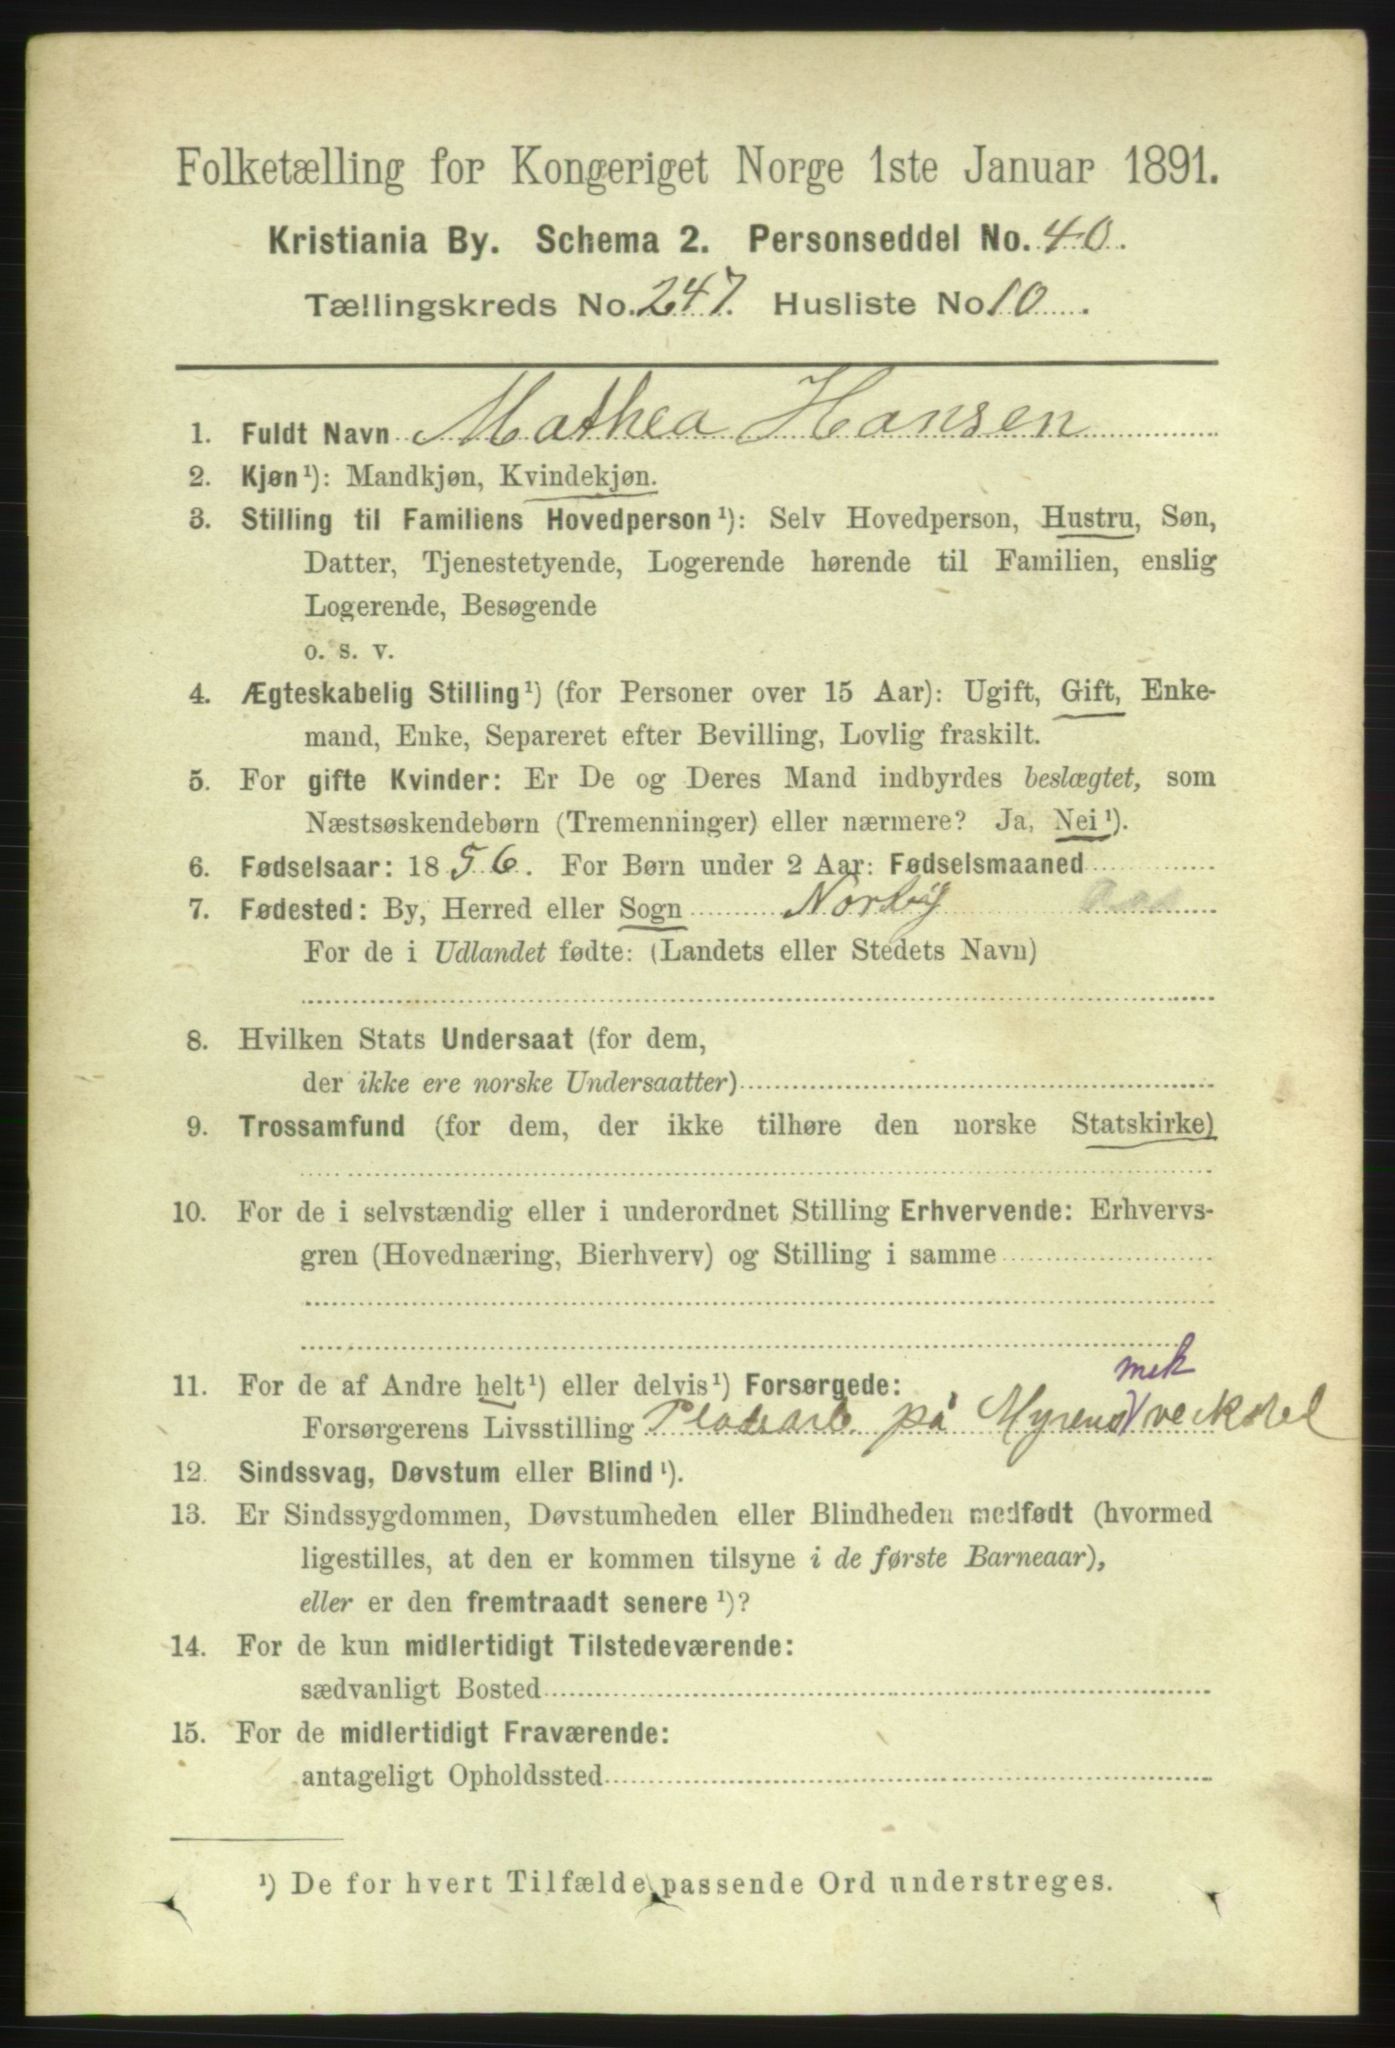 Folketælling for Kongeriget Norge 1ste Januar 1891.
Kristiania By. Schema 2. Personseddel No. 40.
Tællingskreds No. 247. Husliste No 10.
1. Fuldt Navn Mathea Hansen
2. Kjøn¹): Mandkjøn, Kvindekjøn.
3. Stilling til Familiens Hovedperson¹): Selv Hovedperson, Hustru, Søn,
Datter, Tjenestetyende, Logerende hørende til Familien, enslig
Logerende, Besøgende
o. s. v.
4. Ægteskabelig Stilling¹) (for Personer over 15 Aar): Ugift, Gift, Enke-
mand, Enke, Separeret efter Bevilling, Lovlig fraskilt.
5. For gifte Kvinder: Er De og Deres Mand indbyrdes beslægtet, som
Næstsøskendebørn (Tremenninger) eller nærmere? Ja, Nei¹).
6. Fødselsaar: 1856. For Børn under 2 Aar: Fødselsmaaned
7. Fødested: By, Herred eller Sogn Norby Aas
For de i Udlandet fødte: (Landets eller Stedets Navn)
8. Hvilken Stats Undersaat (for dem,
der ikke ere norske Undersaatter)
9. Trossamfund (for dem, der ikke tilhøre den norske Statskirke)
10. For de i selvstændig eller i underordnet Stilling Erhvervende: Erhvervs-
gren (Hovednæring, Bierhverv) og Stilling i samme
11. For de af Andre helt¹) eller delvis¹) Forsørgede:
mek
Forsørgerens Livsstilling på Myrens
12. Sindssvag, Døvstum eller Blind¹).
13. Er Sindssygdommen, Døvstumheden eller Blindheden medfødt (hvormed
ligestilles, at den er kommen tilsyne i de første Barneaar),
eller er den fremtraadt senere¹)?
14. For de kun midlertidigt Tilstedeværende:
sædvanligt Bosted
15. For de midlertidigt Fraværende:
antageligt Opholdssted
¹) De for hvert Tilfælde passende Ord understreges.